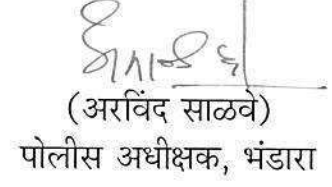 (अरविंद साळवे)
पोलीस अधीक्षक, भंडारा